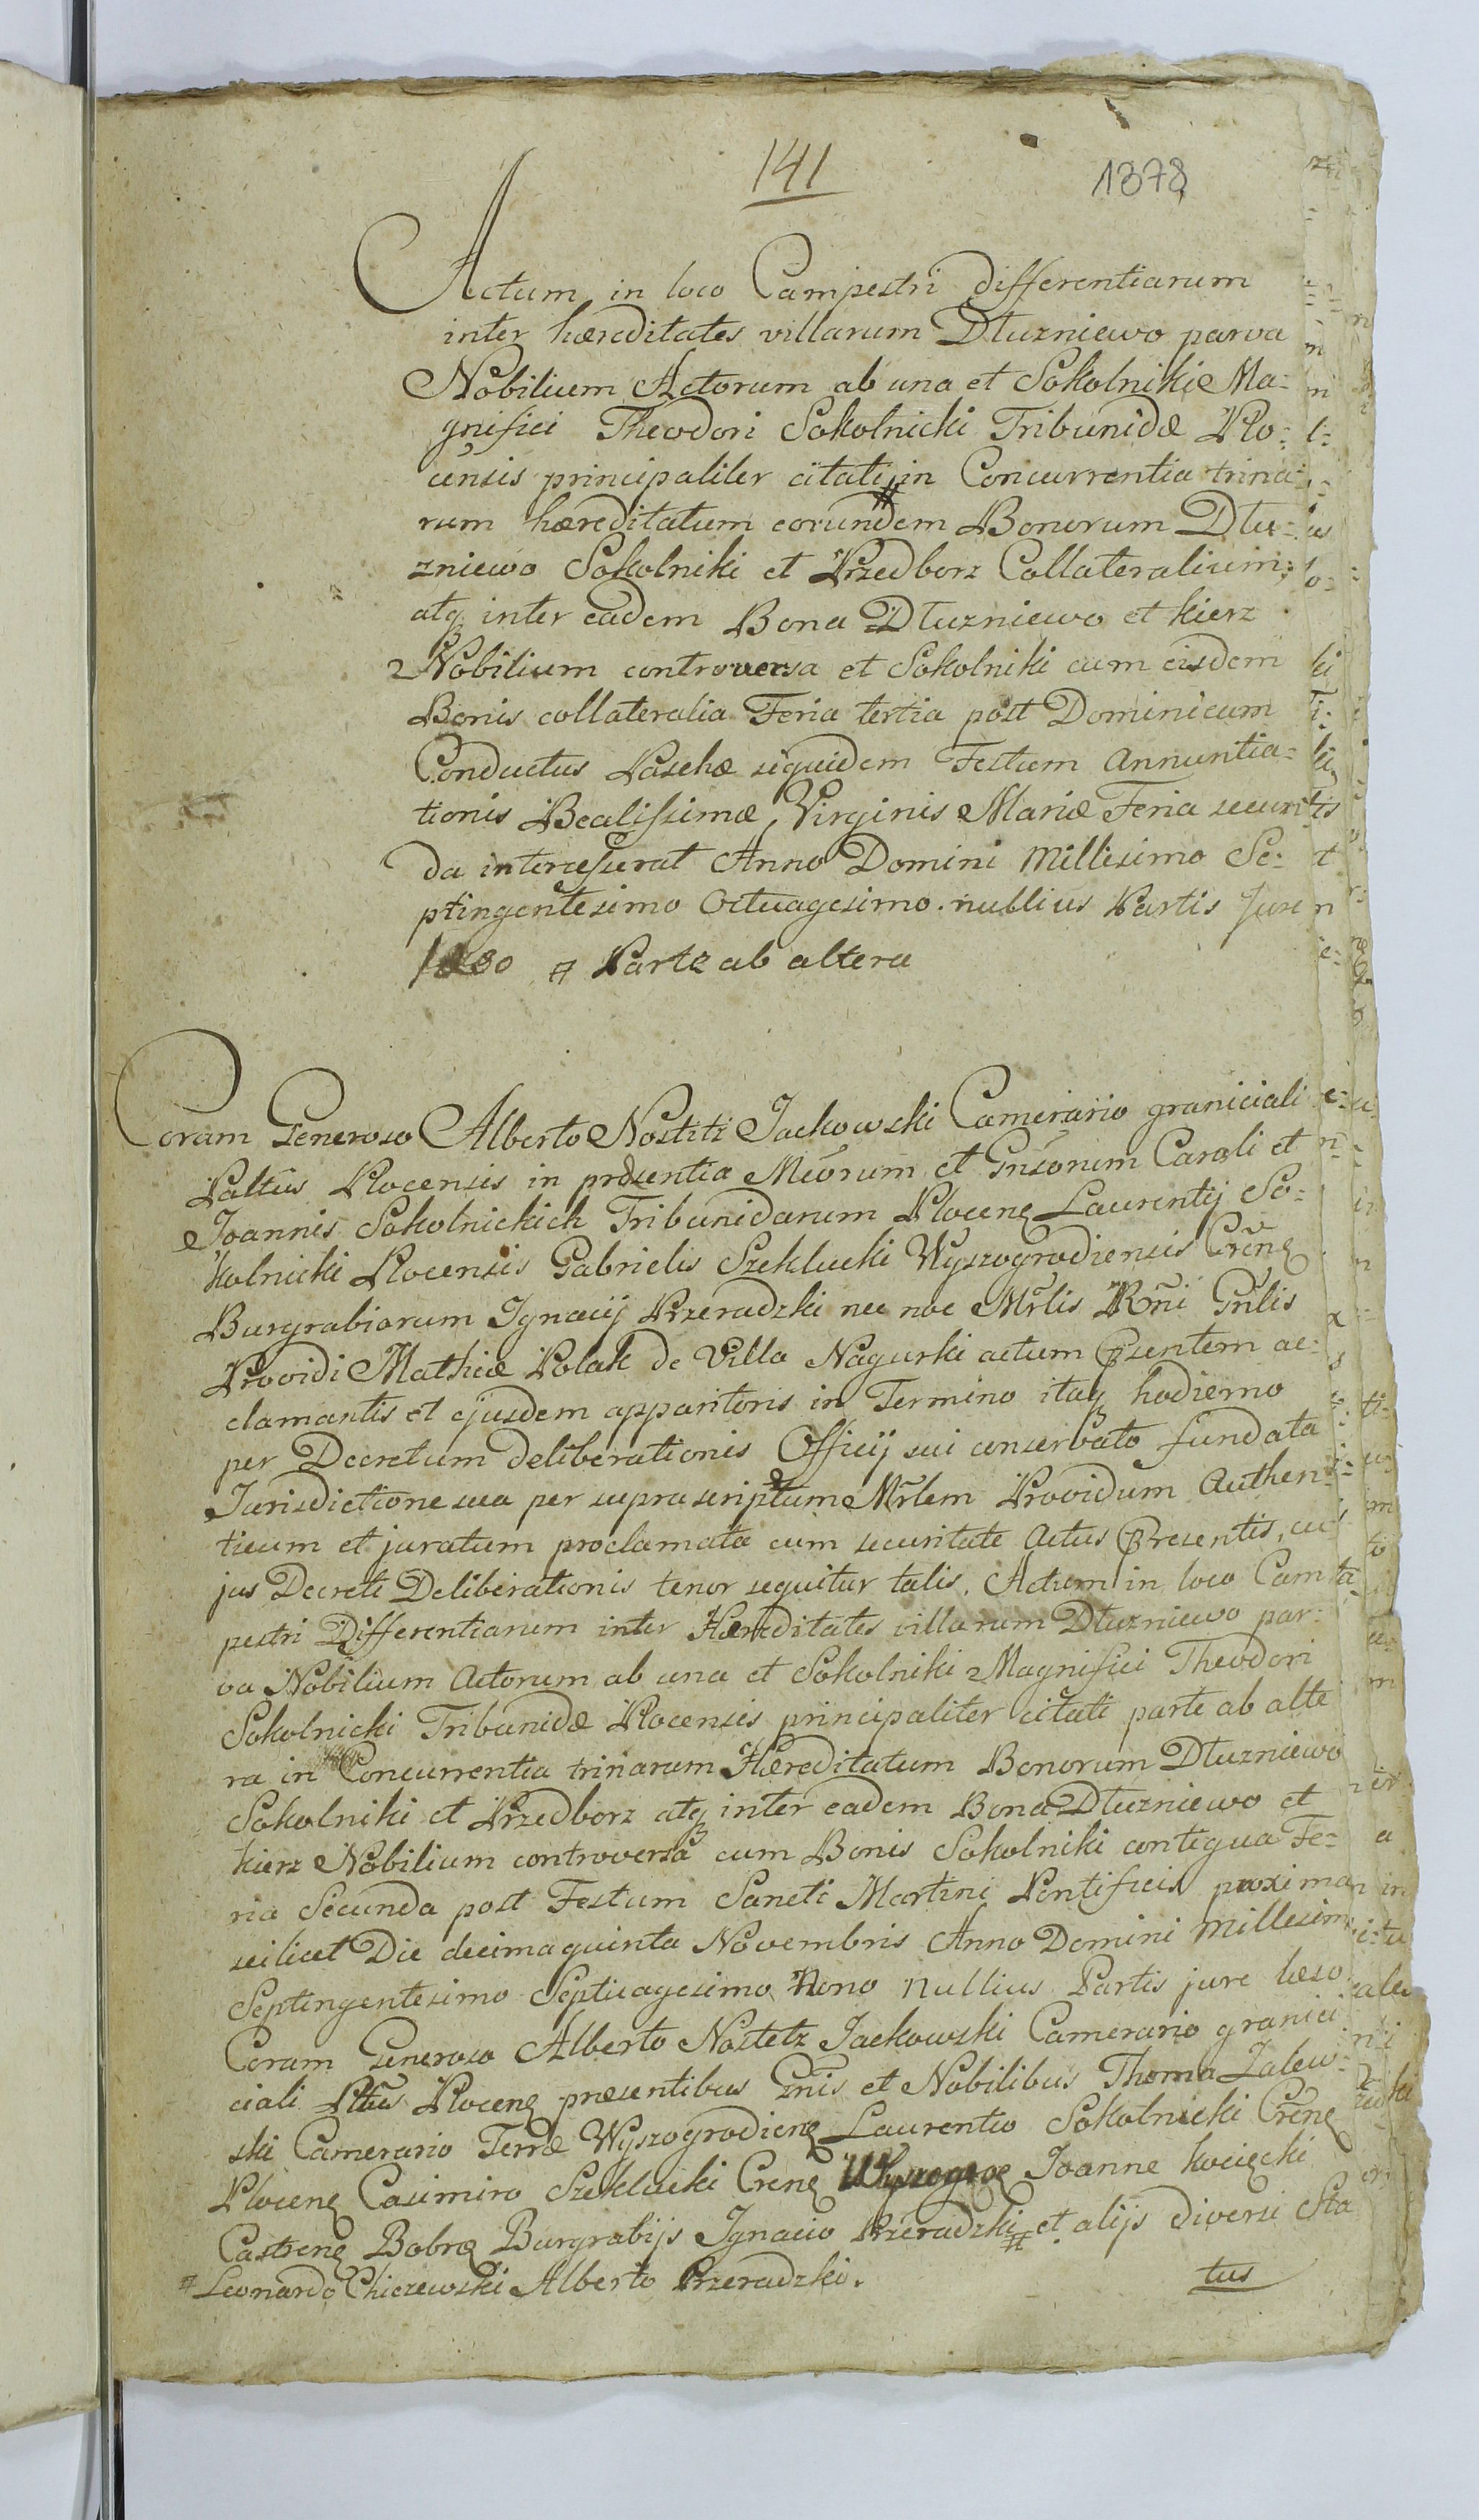 141
1378
Actum in loco Campestri differentiarum
inter hæreditates villarum Dłuzniewo parva
Nobilium Actorum ab una et Sokolniki Ma=
gnifici Theodori Sokolnicki Tribunidæ Plo=
censis principaliter citati # in Concurrentia trina=
rum hæreditatum eorundem Bonorum Dłu=
zniewo Sokolniki et Przedborz Collateralium,
atq inter eadem Bona Dłuzniewo et kierz
Nobilium controversa et Sokolniki cum eisdem
Bonis collateralia Feria tertia post Dominicum
Conductus Paschæ siquidem Festum Annuntia=
tionis Beatissimæ Virginis Mariæ Feria secun
da intercesserat Anno Domini Millesimo Se=
ptingentesimo Octuagesimo. nullius Partis Jure
læso # Parte ab altera
Coram Generoso Alberto Nostitz Jackowski Camerario graniciali
Paltus Plocensis in præsentia Meorum et Gnsorum Caroli et
Joannis Sokolnickich Tribunidarum Plocen Laurentij So=
kolnicki Plocensis Gabrielis Szeklucki Wyszogrodiensis Cren
Burgrabiorum Ignacij Przeradzki nec noc Mrlis Rni Gnlis
Providi Mathiæ Polak de Villa Nagurki actum Psentem ac=
clamantis et ejusdem apparitoris in Termino itaq hodierno
per Decretum deliberationis Officij sui conservato fundata
Jurisdictione sua per suprascriptum Mrlem Providum Authen
ticum et juratum proclamata cum securitate Actus Presentis, cu
jus Decreti Deliberationis tenor sequitur talis. Actum in loco Cam
pestri Differentiarum inter Hæreditates villarum Dłuzniewo par=
va Nobilium Actorum ab una et Sokolniki Magnifici Theodori
Sokolnicki Tribunidæ Plocensis principaliter citati parte ab alte
ra in Concurrentia trinarum Hæreditatum Bonorum Dłuzniewo
Sokolniki et Przedborz atq inter eadem Bona Dłuzniewo et
kierz Nobilium controversa cum Bonis Sokolniki contigua Fe=
ria Secunda post Festum Sancti Martini Pontificis proxima
scilicet Die decima quinta Novembris Anno Domini Millesim
Septingentesimo Septuagesimo Nono nullius Partis jure læso
Coram Generoso Alberto Nostetz Jackowski Camerario granici
ciali Pltus Plocen præsentibus Gnis et Nobilibus Thoma Zalew=
ski Camerario Terræ Wyszogrodien Laurentio Sokolnicki Cren
Plocen Casimiro Szeklucki Cren Joanne kocięcki
Castren Bobro Burgrabijs Ignacio Przeradzki # et alijs diversi Sta
# Leonardo Chiczewski Alberto Przeradzki.
tus